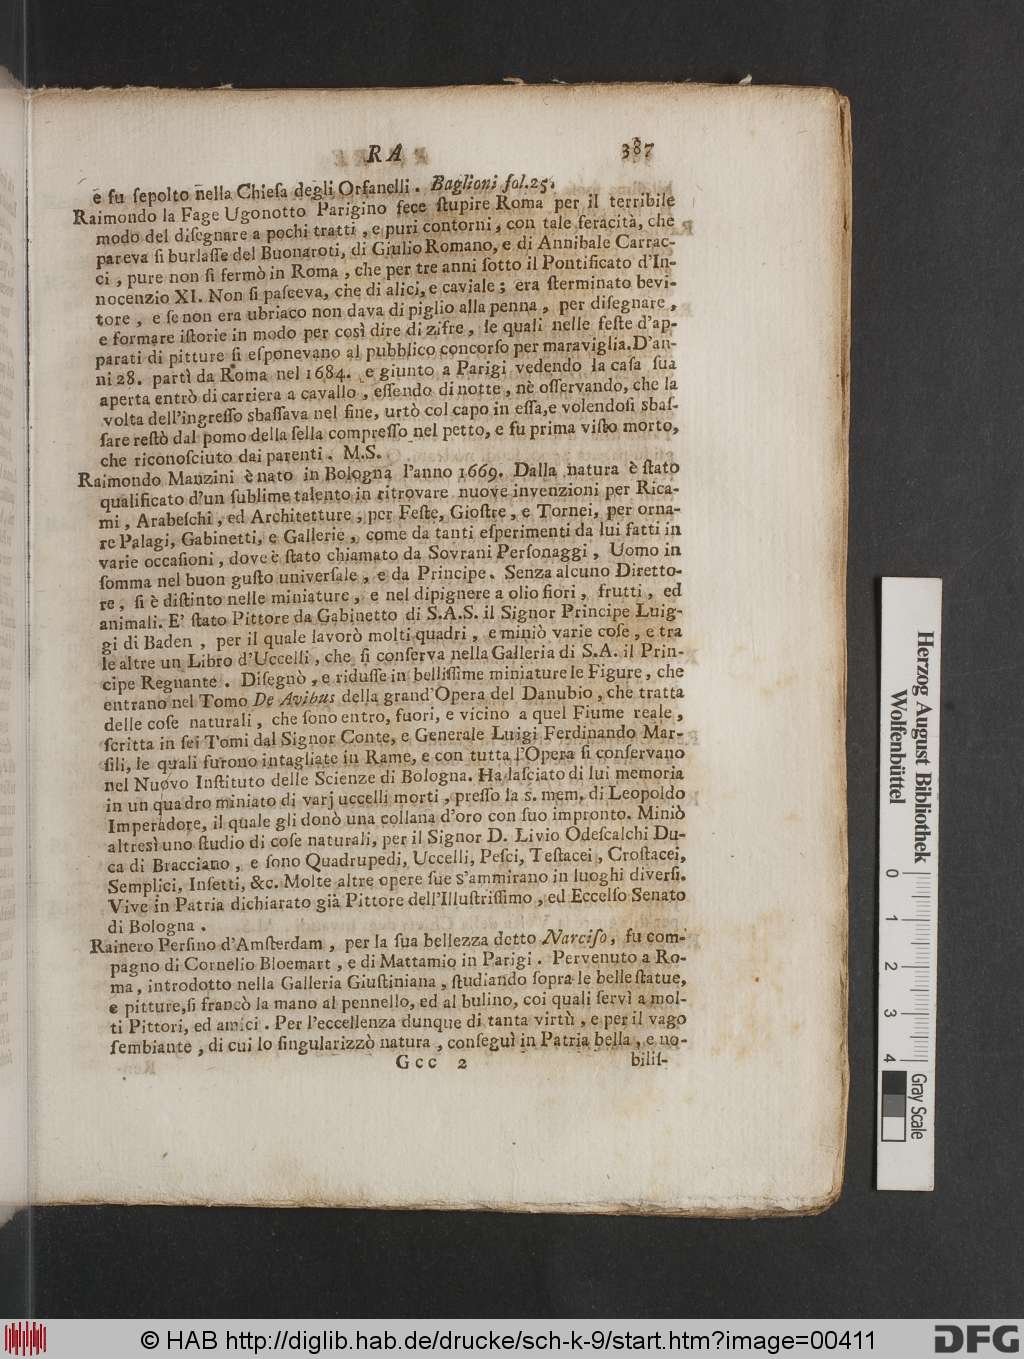 RA 387
e fu ſepolto nella Chieſa degli Orfanelli. Baglioni fol.25.
Raimondo la Fage Ugonotto Parigino fece ſtupire Roma per il terribile
modo del diſegnare a pochi tratti, e puri contorni, con tale feracità, che
pareva ſi burlaſſe del Buonaroti, di Giulio Romano, e di Annibale Carrac-
ci, pure non ſi fermò in Roma, che per tre anni ſotto il Pontificato d'In-
nocenzio XI. Non ſi paſceva, che di alici, e caviale; era ſterminato bevi-
tore, e ſe non era ubriaco non dava di piglio alla penna, per diſegnare,
e formare iſtorie in modo per così dire di zifre, le quali nelle feſte d'ap-
parati di pitture ſi eſponevano al pubblico concorſo per maraviglia. D'an-
ni 28. partì da Roma nel 1684. e giunto a Parigi vedendo la caſa ſua
aperta entrò di carriera a cavallo, eſſendo di notte, nè oſſervando, che la
volta dell'ingreſſo sbaſſava nel fine, urtò col capo in eſſa, e volendoſi sbaſ-
ſare reſtò dal pomo della ſella compreſſo nel petto, e fu prima viſto morto,
che riconoſciuto dai parenti. M.S.
Raimondo Manzini è nato in Bologna l'anno 1669. Dalla natura è ſtato
qualificato d'un ſublime talento in ritrovare nuove invenzioni per Rica-
mi, Arabeſchi, ed Architetture, per Feſte, Gioſtre, e Tornei, per orna-
re Palagi, Gabinetti, e Gallerie, come da tanti eſperimenti da lui fatti in
varie occaſioni, dove è ſtato chiamato da Sovrani Perſonaggi, Uomo in
ſomma nel buon guſto univerſale, e da Principe. Senza alcuno Diretto-
re, ſi è diſtinto nelle miniature, e nel dipignere a olio fiori, frutti, ed
animali. E' ſtato Pittore da Gabinetto di S.A.S. il Signor Principe Luig-
gi di Baden, per il quale lavorò molti quadri, e miniò varie coſe, e tra
le altre un Libro d'Uccelli, che ſi conſerva nella Galleria di S.A. il Prin-
cipe Regnante. Diſegnò, e riduſſe in belliſſime miniature le Figure, che
entrano nel Tomo De Avibus della grand'Opera del Danubio, che tratta
delle coſe naturali, che ſono entro, fuori, e vicino a quel Fiume reale,
ſcritta in ſei Tomi dal Signor Conte, e Generale Luigi Ferdinando Mar-
ſili, le quali furono intagliate in Rame, e con tutta l'Opera ſi conſervano
nel Nuovo Inſtituto delle Scienze di Bologna. Ha laſciato di lui memoria
in un quadro miniato di varj uccelli morti, preſſo la s. mem. di Leopoldo
Imperadore, il quale gli donò una collana d'oro con ſuo impronto. Miniò
altresì uno ſtudio di coſe naturali, per il Signor D. Livio Odeſcalchi Du-
ca di Bracciano, e ſono Quadrupedi, Uccelli, Peſci, Teſtacei, Croſtacei,
Semplici, Inſetti, &c. Molte altre opere ſue s'ammirano in luoghi diverſi.
Vive in Patria dichiarato già Pittore dell'Illuſtriſſimo, ed Eccelſo Senato
di Bologna.
Rainero Perſino d'Amſterdam, per la ſua bellezza detto Narciſo, fu com-
pagno di Cornelio Bloemart, e di Mattamio in Parigi. Pervenuto a Ro-
ma, introdotto nella Galleria Giuſtiniana, ſtudiando ſopra le belle ſtatue,
e pitture, ſi francò la mano al pennello, ed al bulino, coi quali ſervì a mol-
ti Pittori, ed amici. Per l'eccellenza dunque di tanta virtù, e per il vago
ſembiante, di cui lo ſingularizzò natura, conſeguì in Patria bella, e no-
Ccc 2 biliſ-
Herzog August Bibliothek
Wolfenbüttel
0 1 2 3 4
Gray Scale
© HAB http://diglib.hab.de/drucke/sch-k-9/start.htm?image=00411
DFG